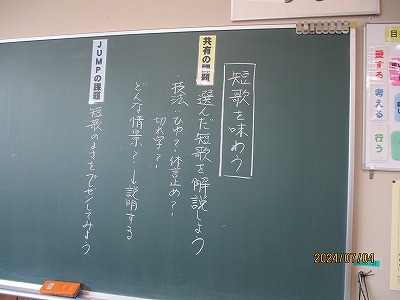 短歌を味わう
共有の課題
選んだ短歌を解説しよう
・技法 ひゆ?・体言止め?
切れ字?
どんな情景?→説明する
JUMPの課題
短歌のよさをプレゼンしてみよう
愛する
考える
行う
2024/07/04